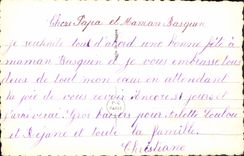 Chers Papa et Maman Basquin
je souhaite tout d'abord une bonne fête à
maman Basquin et je vous embrasse tous
deux de tout mon cœur en attendant
la joie de vous revoir Encore jours et
j'arriverai Gros baisers pour Arlette Loulou
et Réjane et toute la famille.
Christiane